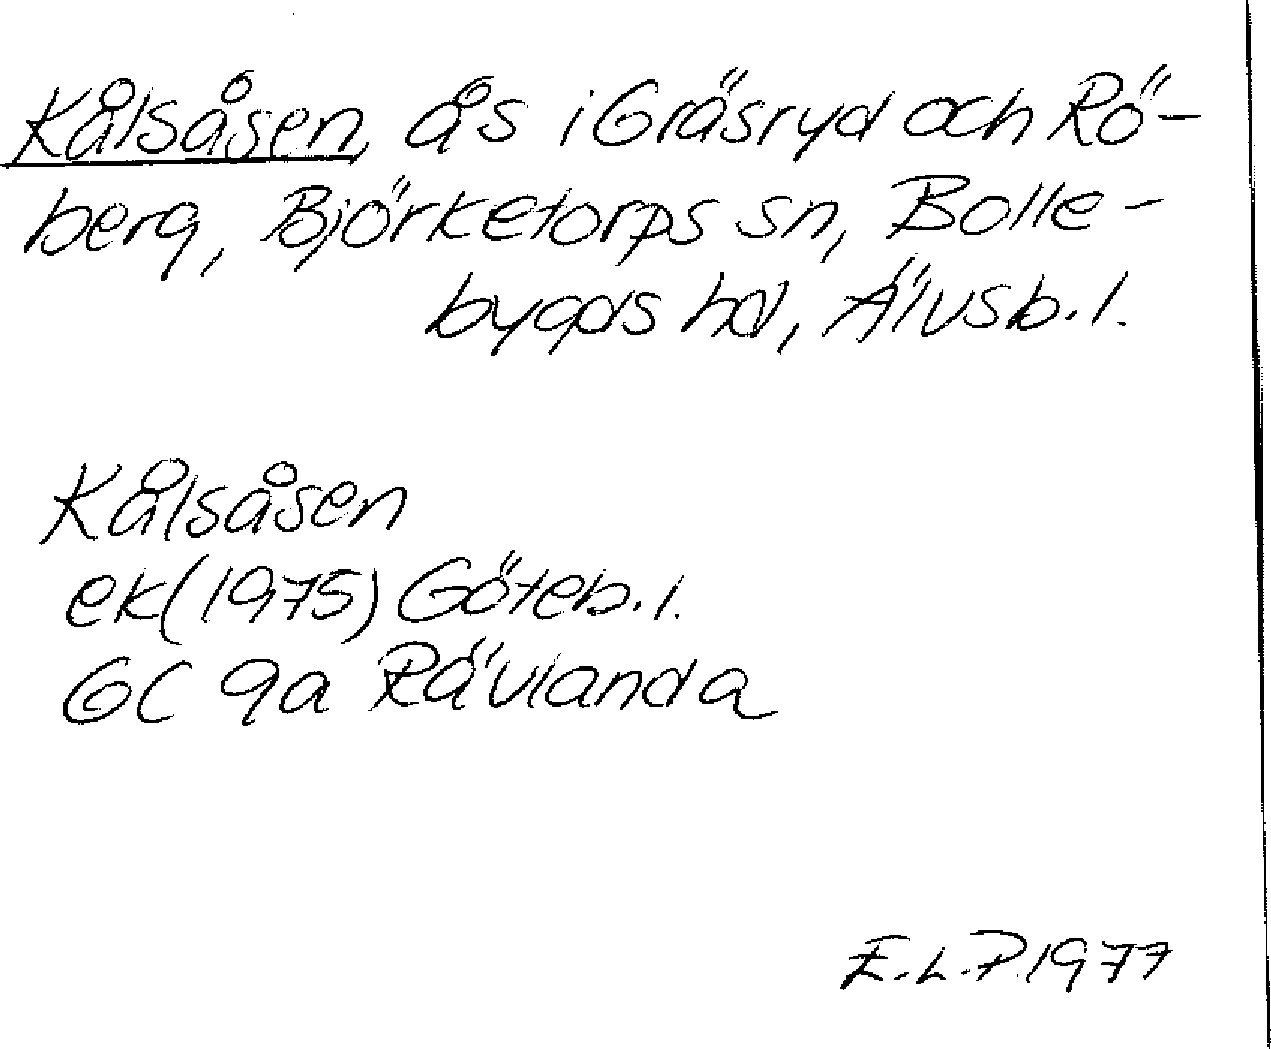 Kålsåsen, ås i Gräsryd och Rö-
berg, Björketorps sn, Bolle-
bygds hd, Älvsb. l.
Kålsåsen
ek (1975) Göteb. l.
GC 9a Rävlanda
E.L.P. 1977